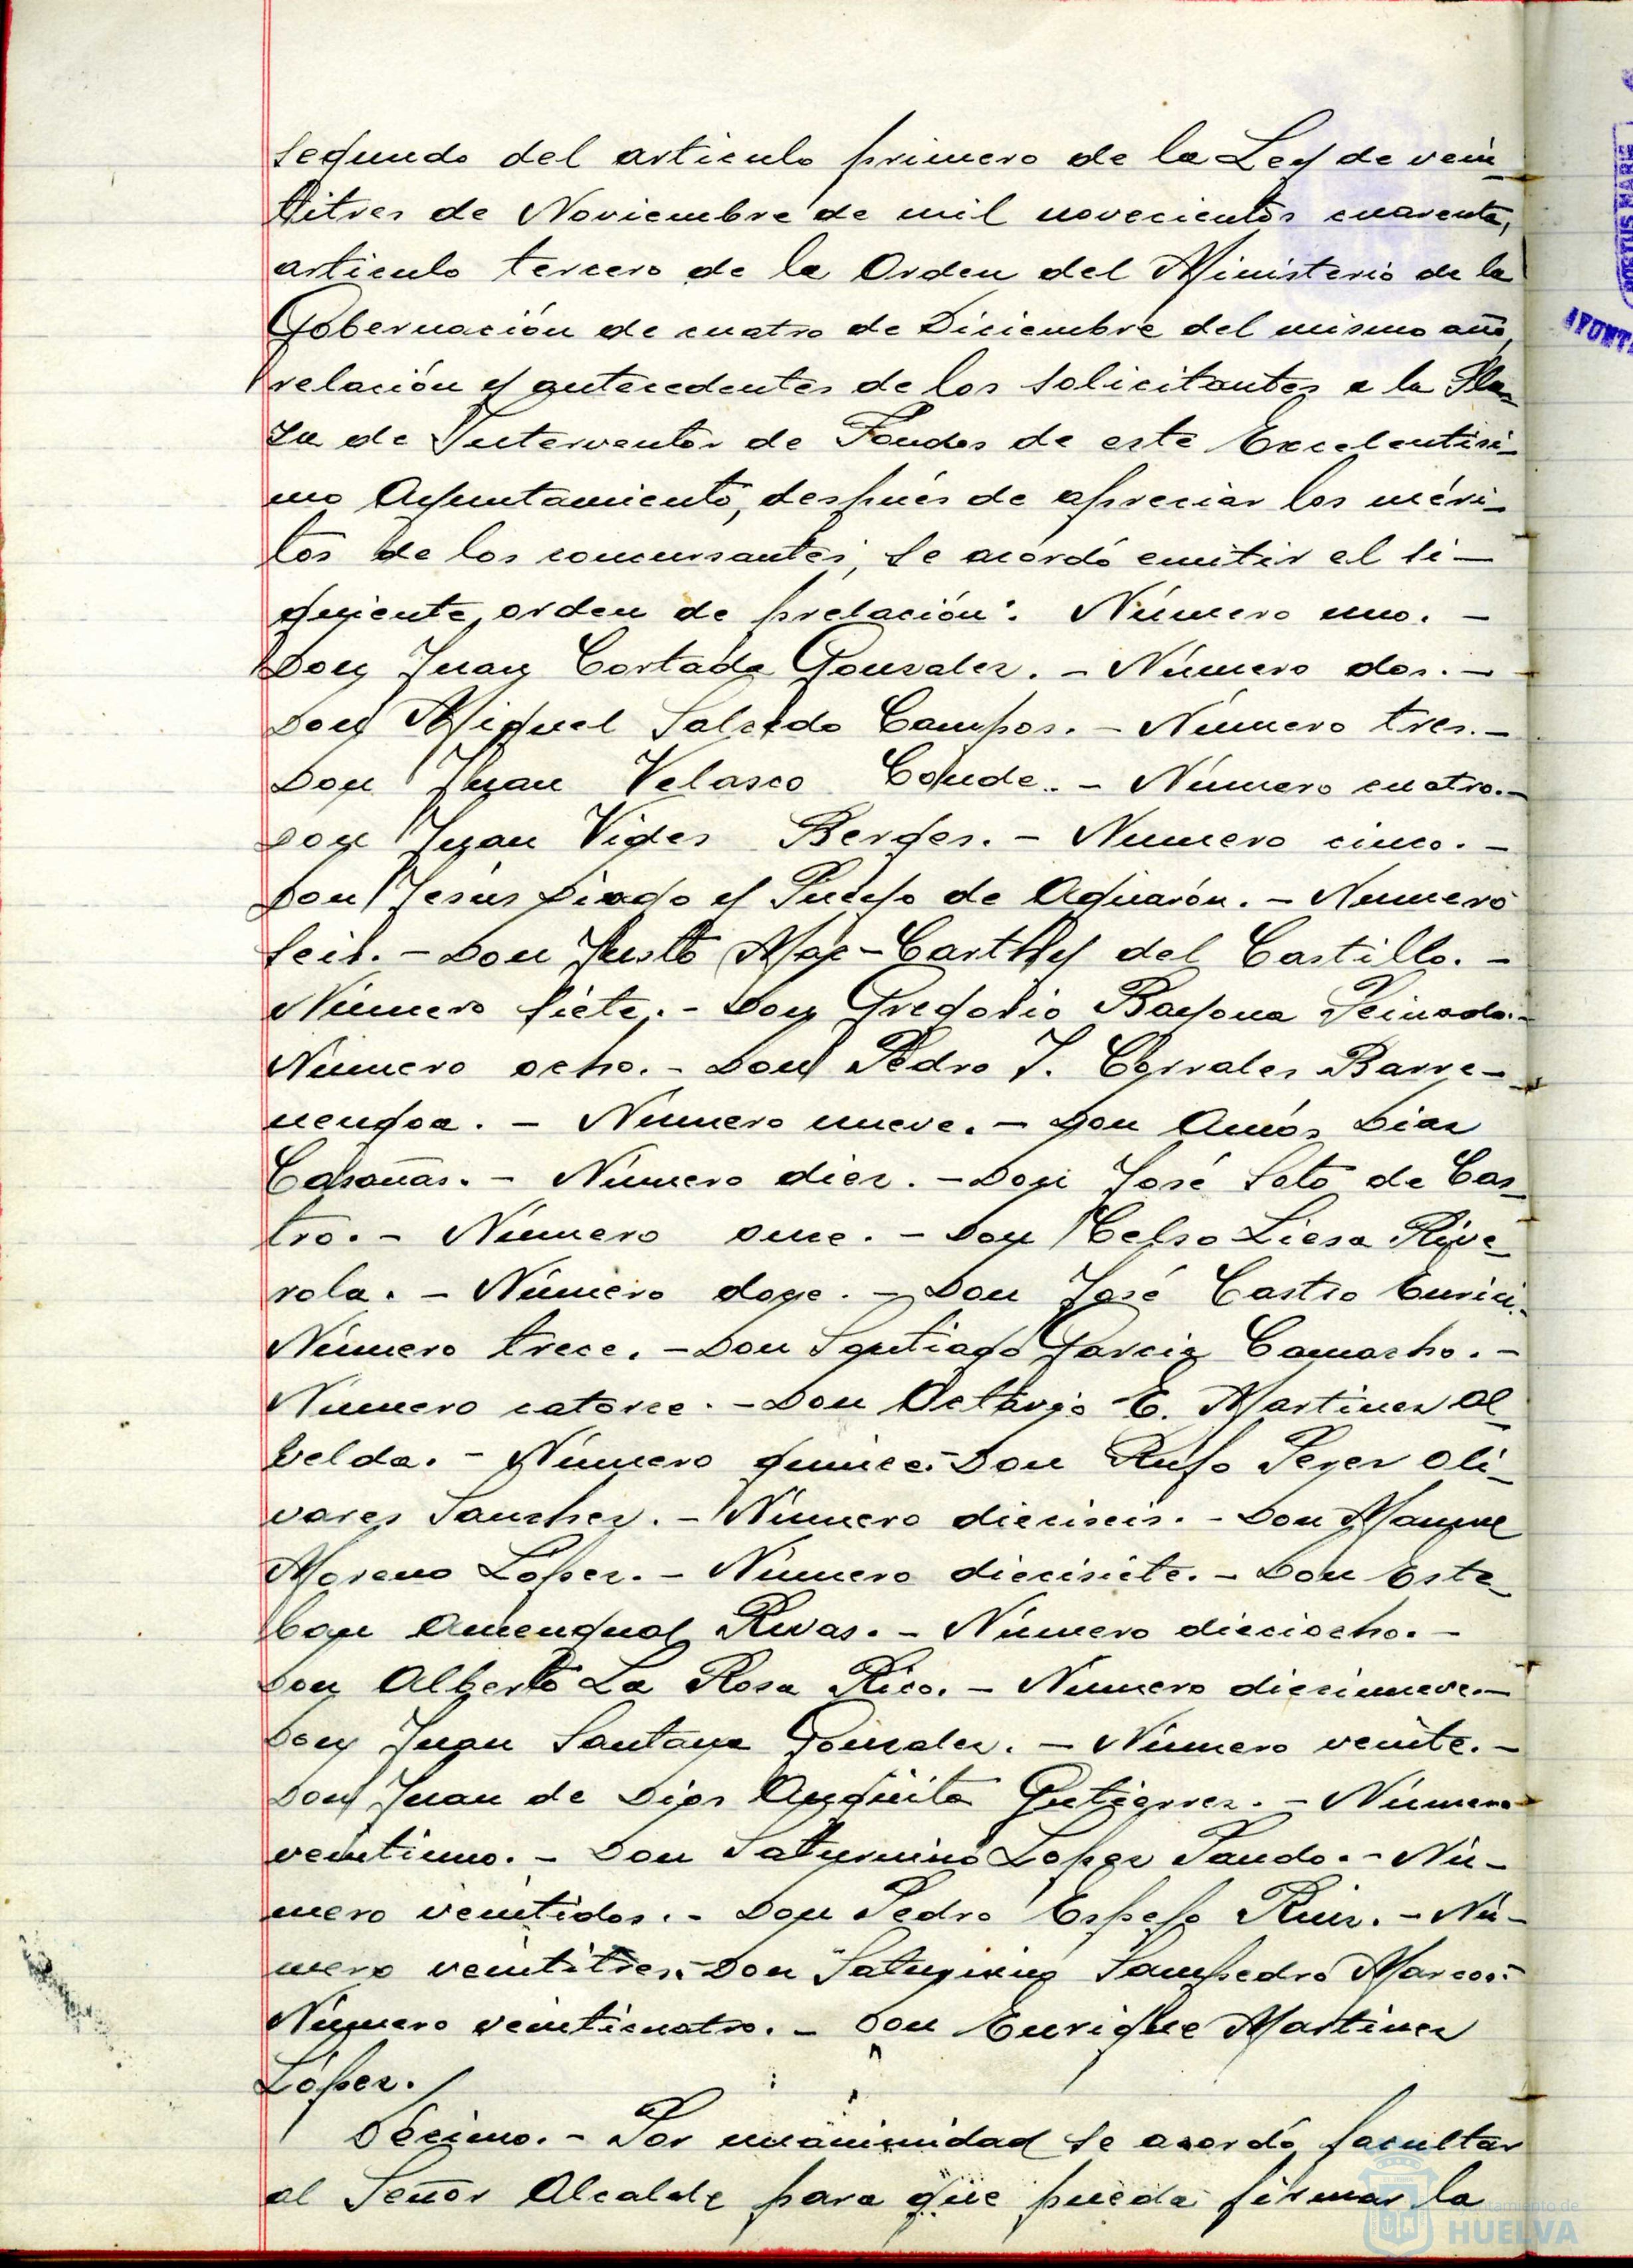 segundo del articulo primero de la Ley de vein
titres de Noviembre de mil novecientos cuarenta,
articulo tercero de la Orden del Ministerio de la
Gobernación de cuatro de Diciembre del mismo año,
relación y antecedentes de los solicitantes a la Pla
za de Interventor de Fondos de este Excelentisi-
mo Ayuntamiento, después de apreciar los méri-
tos de los concursantes, se acordó emitir el si-
guiente orden de prelación: Número uno. -
Don Juan Cortada Gonzalez. - Número dos. -
Don Miguel Salcedo Campos. - Número tres. -
Don Juan Velasco Conde. - Número cuatro. -
Don Juan Viges Berges. - Numero cinco. -
Don Jesus Diago y Pueyo de Aguarón. - Numero
seis. - Don Justo Mac-Carthy del Castillo. -
Número siete. - Don Gregorio Bayona Peinado. -
Número ocho. - Don Pedro J. Corrales Barre-
nengoa. - Número nueve. - Don Amós Diaz
Casañas. - Número diez. - Don José Soto de Cas
tro. - Número once. - Don Celso Liesa Rive
rola. - Número doce. - Don José Castro
Número trece. - Don Santiago Garcia Camacho. -
Número catorce. - Don Octavio E. Martinez Al
belda. - Número quince. - Don Rufo Perez Oli-
vares Sanchez. - Número dieciseis. - Don Manuel
Moreno López. - Número diecisiete. - Don Este
ban Amengual Rivas. - Número dieciocho. -
Don Alberto La Rosa Rico. - Número diecinueve. -
Don Juan Santana Gonzalez. - Número veinte. -
Don Juan de Dios Anguita Gutierrez. - Número
veintiuno. - Don Saturnino Lopez Pando. - Nú-
mero veintidos. - Don Pedro Espejo Ruiz. - Nú-
mero veintitres. - Don Saturnino Sampedro Marcos. -
Número veinticuatro. - Don Enrique Martinez
López.
Décimo. - Por unanimidad se acordó facultar
al Señor Alcalde para que pueda firmar la
PORTUS MARIS
AYUNT
Ayuntamiento de
HUELVA